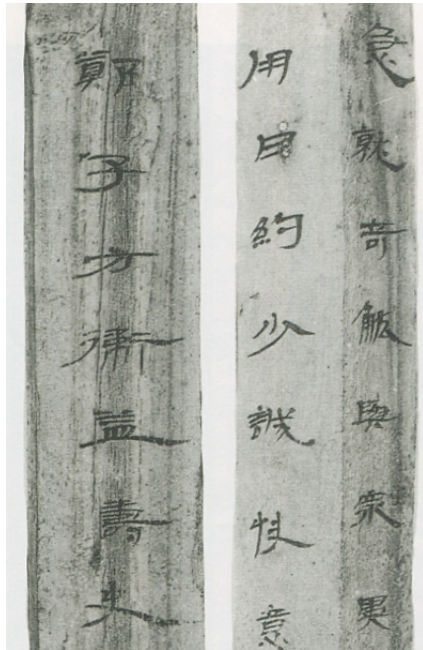 急就奇觚與衆異
用日約少誠快意
鄭子方衛益壽史